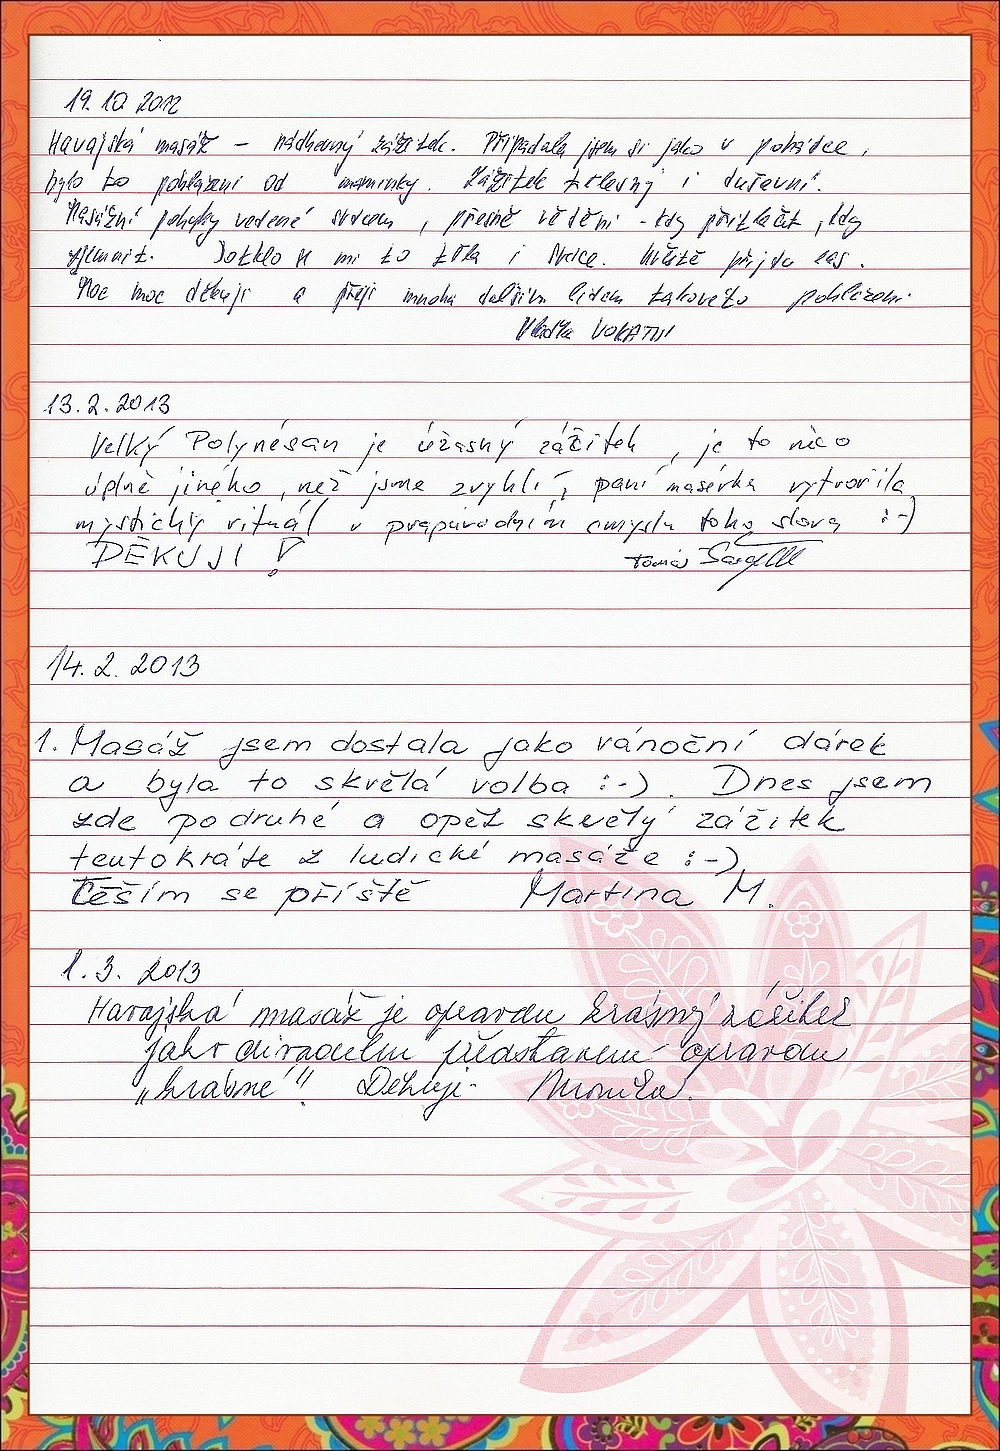 19.10.2012
Havajská masáž – nádherný zážitek. Připadala jsem si jako v pohádce,
bylo to pohlazení od maminky. Zážitek tělesný i duševní.
Masážní pohyby vedené srdcem, přesné vědění - kdy přitlačit, kdy
zjemnit. Dotklo se mi to těla i srdce. Určitě přijdu zas.
Moc moc děkuji a přeji mnoha dalším lidem takového pohlazení.
Vlaďka
13.2.2013
Velký Polynésan je úžasný zážitek, je to něco
úplně jiného, než jsme zvyklí, paní masérka vytvořila
mystický rituál v prapůvodním smyslu toho slova :-)
DĚKUJI! Tomáš
14.2.2013
1. Masáž jsem dostala jako vánoční dárek
a byla to skvělá volba :-). Dnes jsem
zde podruhé a opět skvělý zážitek
tentokráte z ludické masáže :-)
Těším se příště Martina M.
1.3. 2013
Havajská masáž je opravdu krásný zážitek
jako divadelní představení opravdu
„krásné"! Děkuji Monika.